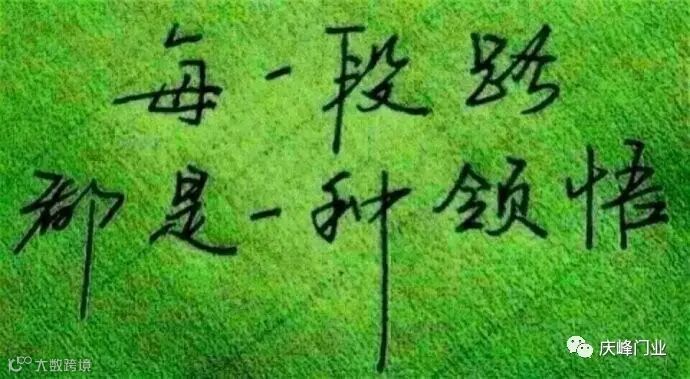 每一段路
都是一种领悟
庆峰门业
大数跨境